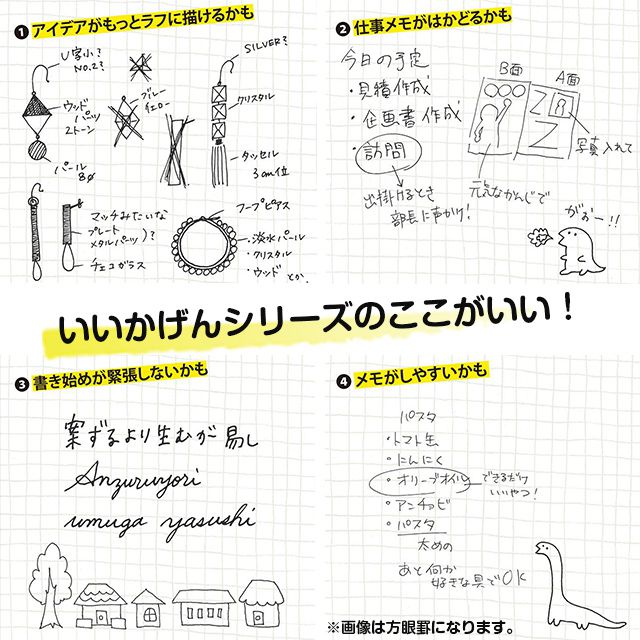 ❶ アイデアがもっとラフに描けるかも
U字小?
No.2?
ウッド
パーツ
2トーン
パール
8φ
ブルー
イエロー
SILVER?
クリスタル
タッセル
3cm位
マッチみたいな
プレート
メタルパーツ)?
チェコガラス
フープピアス
・淡水パール
・クリスタル
・ウッド とか
❷ 仕事メモがはかどるかも
今日の予定
・見積作成
・企画書作成
・訪問
出掛けるとき
部長に声かけ!
B面
A面
写真入れて
元気なかんじで
がおー!!
いいかげんシリーズのここがいい!
❸ 書き始めが緊張しないかも
案ずるより生むが易し
Anzuruyori
umuga yasushi
❹ メモがしやすいかも
パスタ
・トマト缶
・にんにく
・オリーブオイル
できるだけ
いいやつ!
・アンチョビ
・パスタ
太めの
あと何か
好きな具でOK
※画像は方眼罫になります。